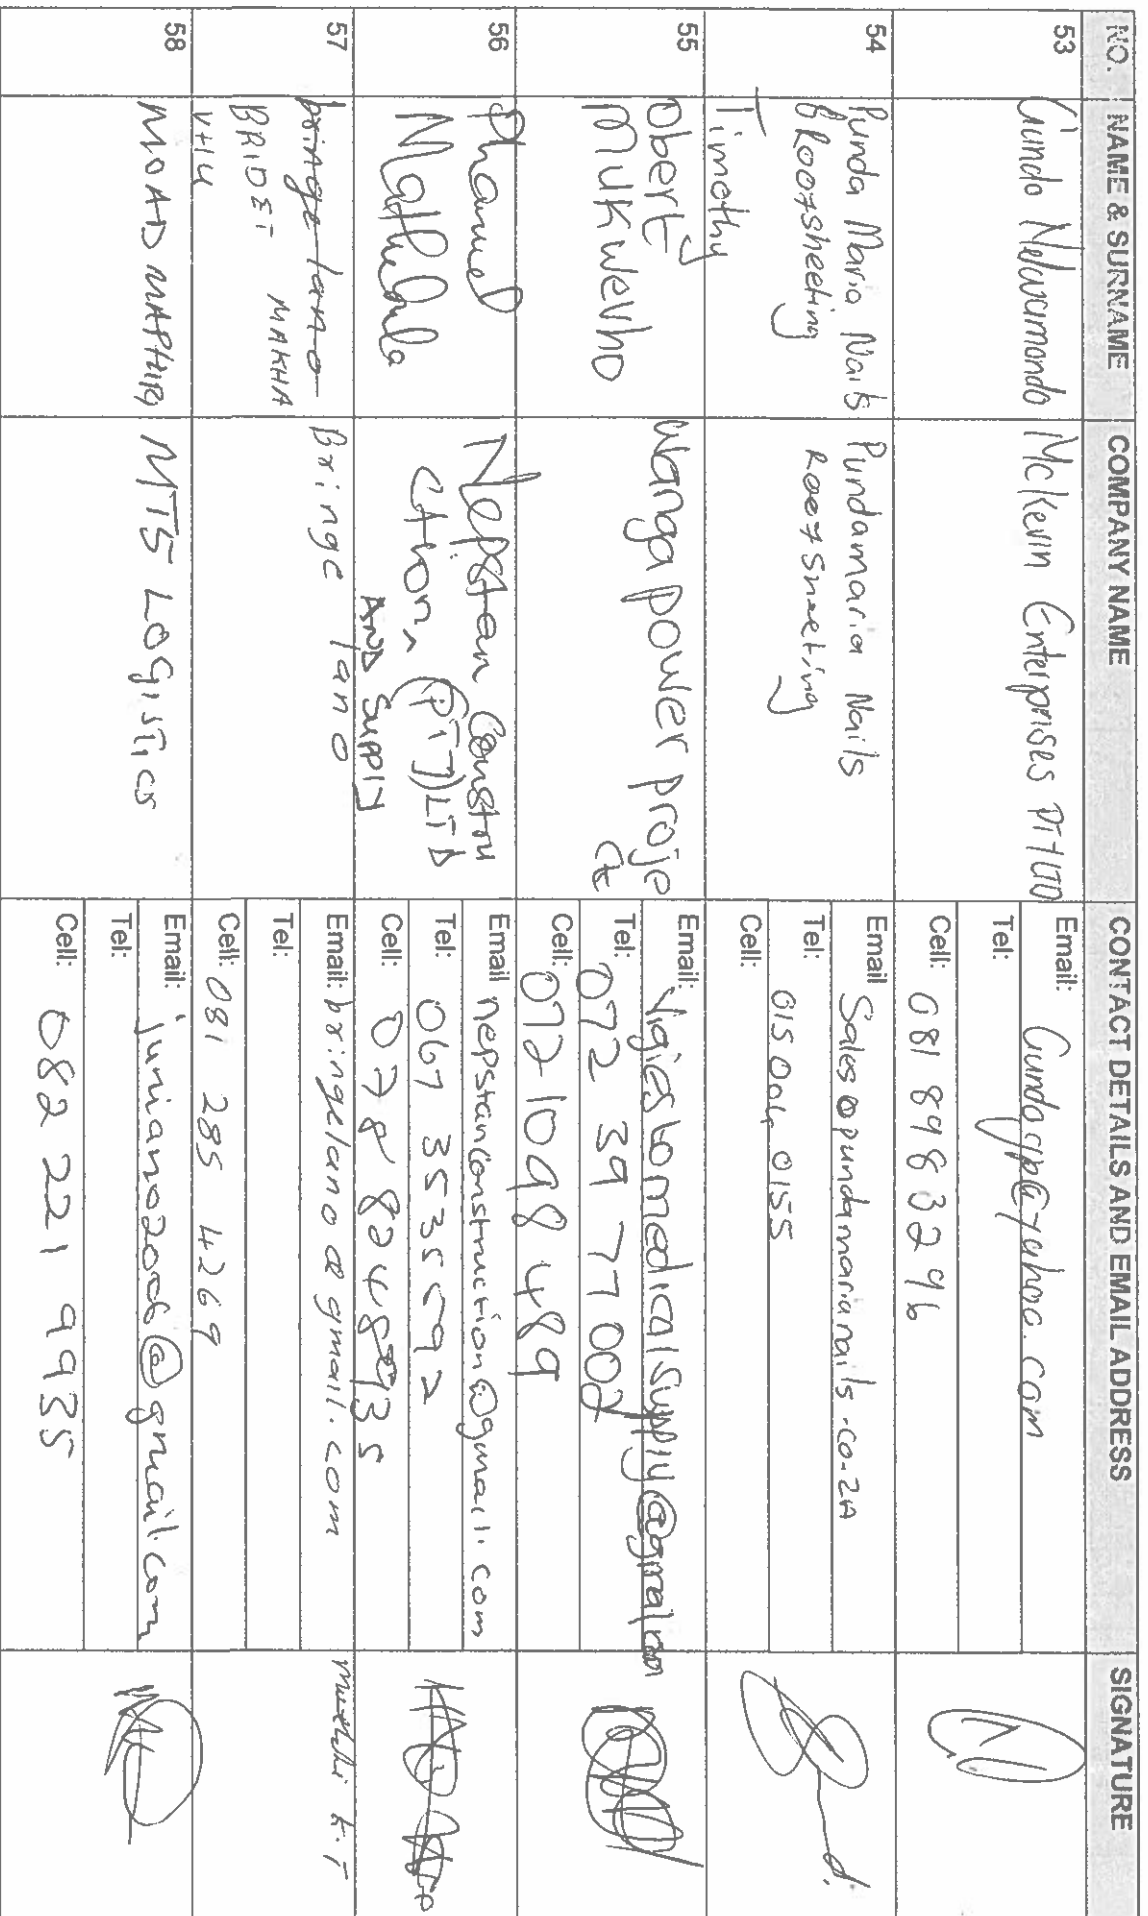 NO. NAME & SURNAME COMPANY NAME CONTACT DETAILS AND EMAIL ADDRESS SIGNATURE
53 Gundo Mckevin Enterprises
Email: @yahoo.com
Tel:
Cell: 081 898 3296
54 Punda Maria Nails
& Roofsheeting
Timothy
Pundamaria Nails
Roofsheeting
Email Sales@pundamarianails.co.ZA
Tel: 015 004 0155
Cell:
55 Obert
Mukwevho
Wanga power proje
ct
Email:
Tel: 072 39 77 002
Cell: 072 1098 489
56 Nepstan Constru
ction, (PTY) LTD
AND SUPPLY
Email nepstanconstruction@gmail.com
Tel: 067 353 5592
Cell: 078
57 bringe lano
BRIDET MAKHA
VHU
Bringe lano
Email: bringelano@gmail.com
Tel:
Cell: 081 285 4269
K.T
58 MOAD MTS LOGISTICS
Email: @gmail.com
Tel:
Cell: 082 221 9935